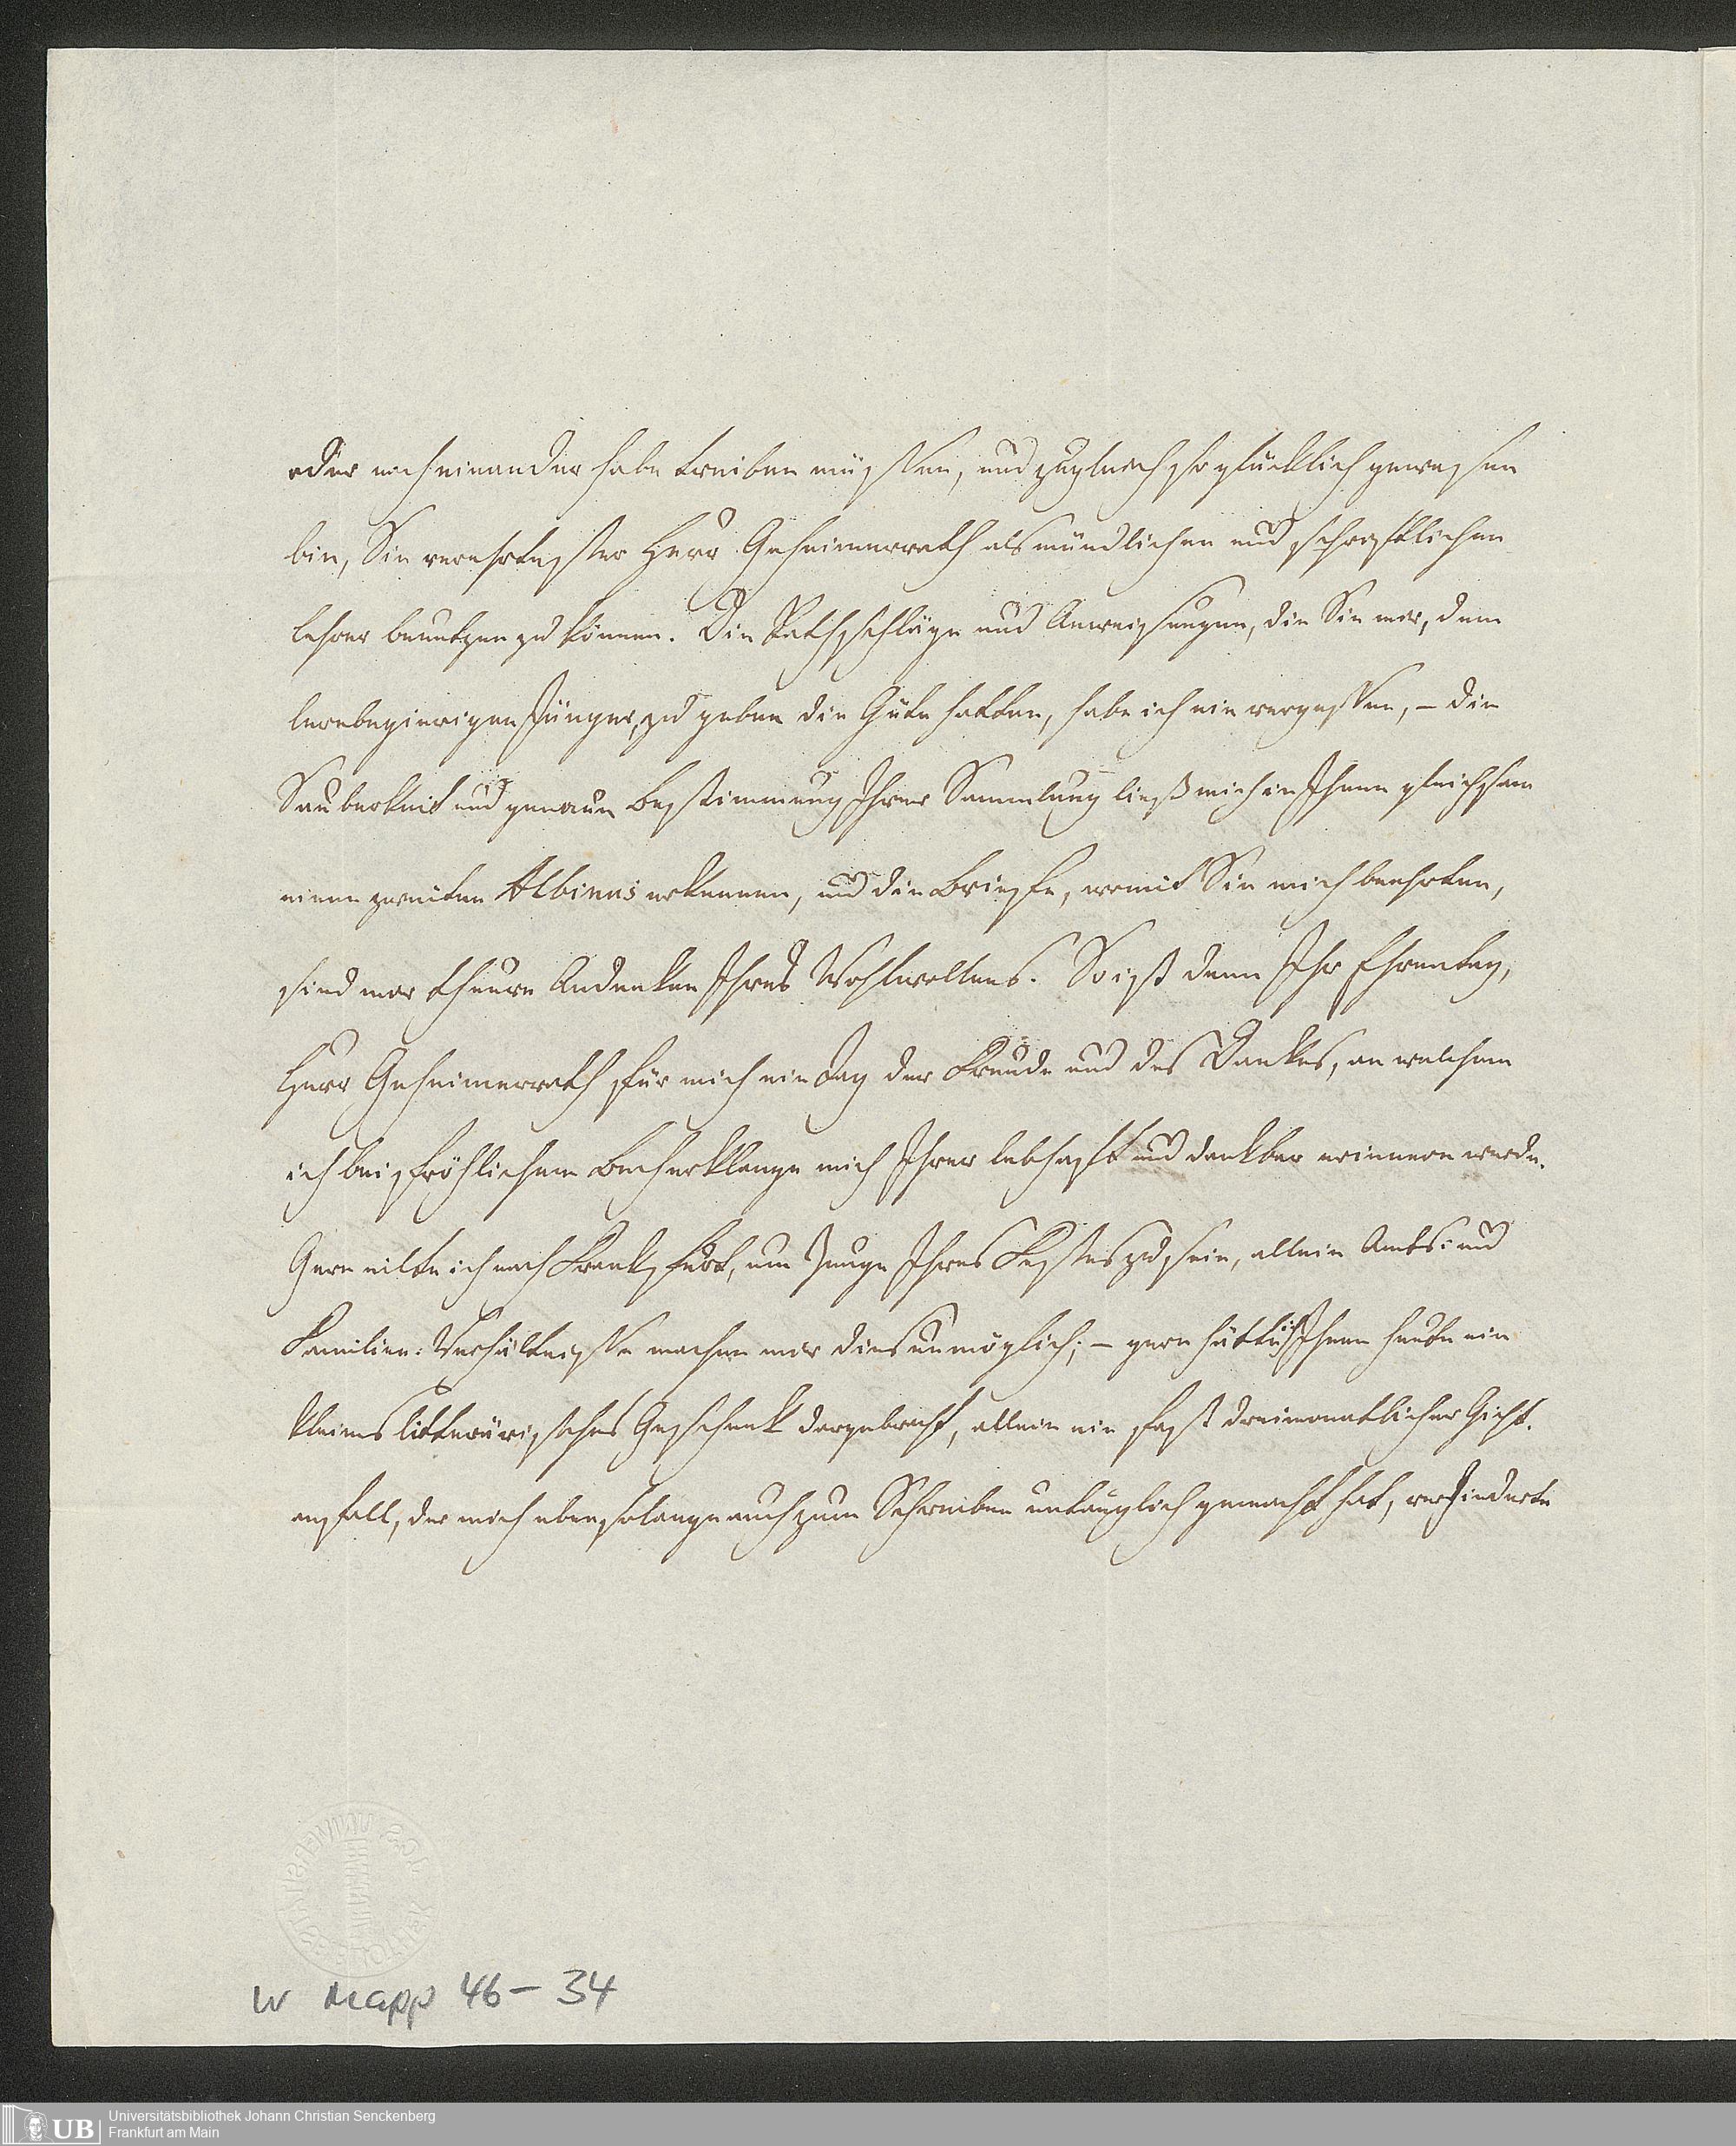 oder nacheinander habe treiben müssen, und zugleich so glücklich gewesen
bin, Sie verehrtester Herr Geheimerrath als mündlichen und schriftlichen
Lehrer benutzen zu können. Die Rathschläge und Anweisungen, die Sie mir, dem
lernbegierigen Jünger, zu geben die Güte hatten, habe ich nie vergessen, – die
Sauberkeit und genaue Bestimmung Ihrer Sammlung ließ mich in Ihnen gleichsam
einen zweiten Albinus erkennen, und die Briefe, womit Sie mich beehrten,
sind mir theure Andenken Ihres Wohlwollens. So ist denn Ihr Ehrentag,
Herr Geheimerrath für mich ein Tag der Freude und des Dankes, an welchem
ich bei fröhlichem Becherklange mich Ihrer lebhaft und dankbar erinnern werde.
Gern eilte ich nach Frankfurt, um Zeuge Ihres Festes zu sein, allein Amts- und
Familien-Verhältnisse machen mir dies unmöglich; – gern hätte ich Ihnen heute ein
kleines litterärisches Geschenk dargebracht, allein ein fast dreimonatlicher Gicht-
anfall, der mich ebensolange auch zum Schreiben untauglich gemacht hat, verhinderte
W Mapp 46 – 34
UB Universitätsbibliothek Johann Christian Senckenberg
Frankfurt am Main